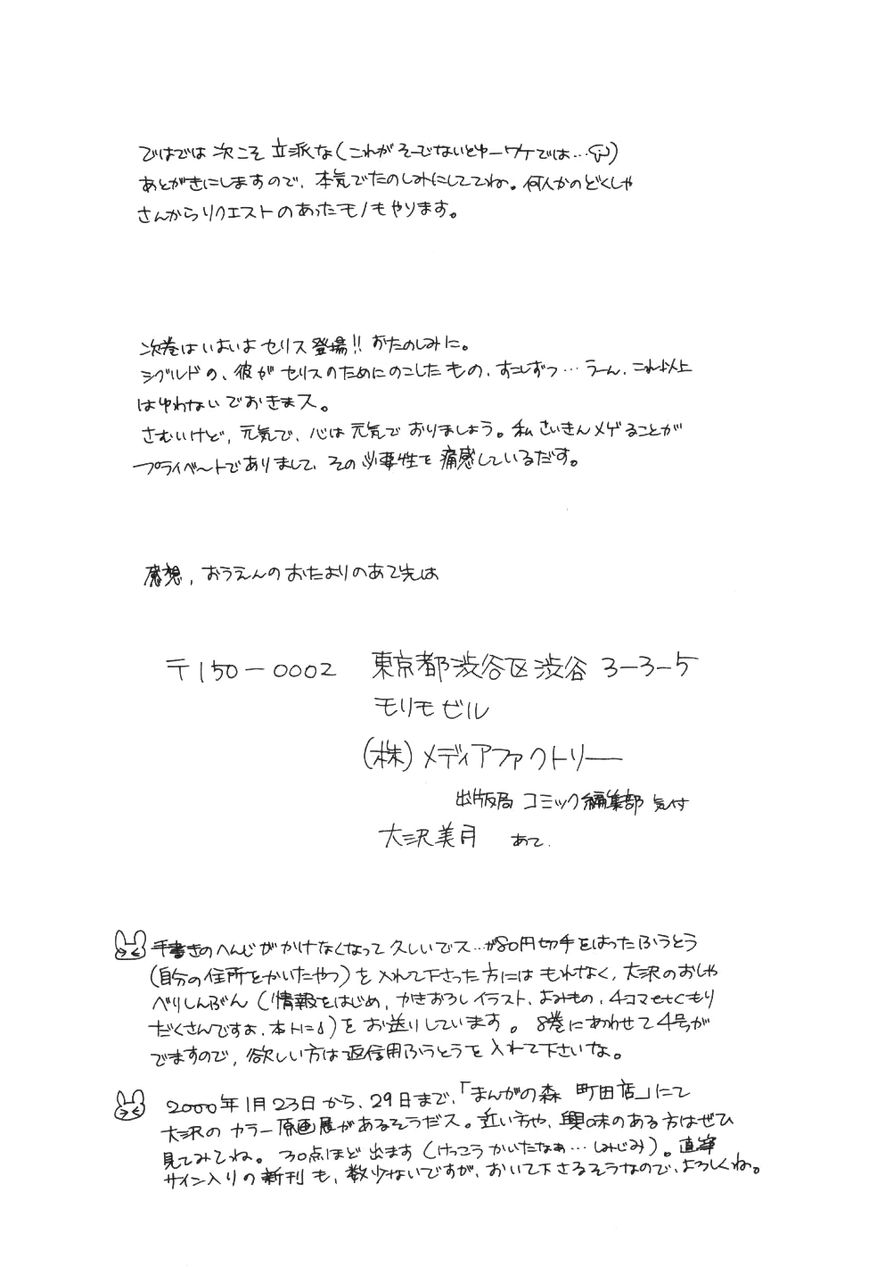 ではでは 次こそ 立派な(これが そーでないとゆーワケでは…)
あとがきにしますので、本気でたのしみにしててね。何人かのどくしゃ
さんからリクエストのあったモノもやります。
次巻はいよいよ セリス登場!! おたのしみに。
シグルドの、彼が セリスのためにのこしたもの、すこしずつ…うーん、これ以上
はゆわないでおきまス。
さむいけど、元気で、心は元気で おりましょう。私さいきんメゲることが
プライベートでありまして、その必要性を痛感しているだす。
感想、おうえんのおたよりのあて先は
〒150-0002 東京都渋谷区渋谷 3-3-5
モリモビル
(株)メディアファクトリー
出版局 コミック編集部 気付
大沢美月 あて.
手書きのへんじがかけなくなって 久しいでス…が80円切手をはったふうとう
(自分の住所をかいたやつ)を入れて下さった方には もれなく、大沢のおしゃ
べりしんぶん(情報をはじめ、かきおろしイラスト、よみもの、4コマetcもり
だくさんですよ、本トに)をお送りしています。8巻にあわせて4号が
でますので、欲しい方は返信用ふうとうを入れて下さいな。
2000年1月23日から、29日まで、「まんがの森 町田店」にて
大沢の カラー原画展があるそうだス。近い方や、興味のある方はぜひ
見てみてね。30点ほど出ます(けっこうかいたなぁ…しみじみ)。直筆
サイン入りの新刊も、数少ないですが、おいて下さるそうなので、よろしくね。